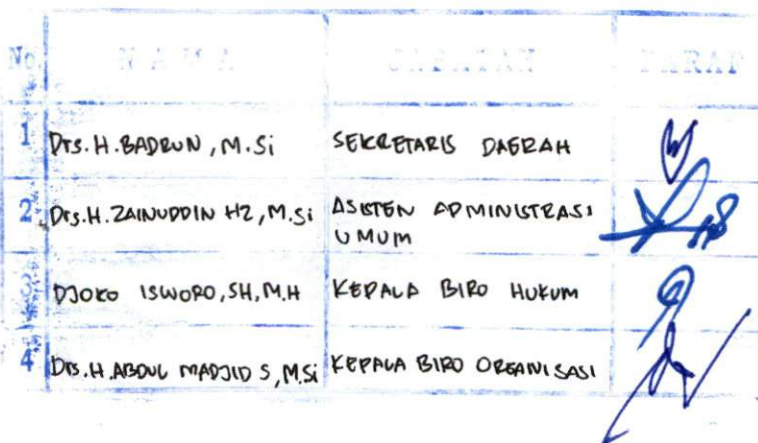 No. N A M A JABATAN PARAF
1 Drs. H. BADRUN, M.Si SEKRETARIS DAERAH
2 Drs. H. ZAINUDDIN HZ, M.Si ASISTEN ADMINISTRASI
UMUM
3 DJOKO ISWORO, SH, M.H KEPALA BIRO HUKUM
4 Drs. H. ABDUL MADJID S, M.Si KEPALA BIRO ORGANISASI